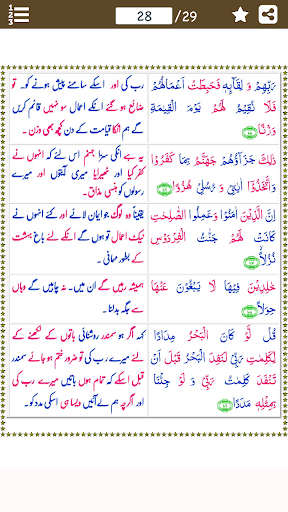 28 /29
رَبِّهِمْ وَ لِقَآئِهٖ فَحَبِطَتْ اَعْمَالُهُمْ
فَلَا نُقِيْمُ لَهُمْ يَوْمَ الْقِيٰمَةِ
وَزْنًا
رب کی اور اسکے سامنے پیش ہونے کو۔ تو
ضائع ہو گئے انکے اعمال سو نہیں قائم کریں
گے ہم انکا قیامت کے دن کچھ بھی وزن۔
ذٰلِكَ جَزَآؤُهُمْ جَهَنَّمُ بِمَا كَفَرُوْا
وَاتَّخَذُوْۤا اٰيٰتِىْ وَ رُسُلِىْ هُزُوًا
یہ ہے انکی سزا جہنم اس لئے کہ انہوں نے
کفر کیا اور ٹھیرایا میری آیتوں اور میرے
رسولوں کو ہنسی مذاق۔
اِنَّ الَّذِيْنَ اٰمَنُوْا وَعَمِلُوا الصّٰلِحٰتِ
كَانَتْ لَهُمْ جَنّٰتُ الْفِرْدَوْسِ
نُزُلًا
یقیناً وہ لوگ جو ایمان لائے اور کئے انہوں نے
نیک اعمال تو ہوں گے انکے لئے باغ بہشت
کے بطور مہمانی۔
خٰلِدِيْنَ فِيْهَا لَا يَبْغُوْنَ عَنْهَا
حِوَلًا
ہمیشہ رہیں گے ان میں۔ نہ چاہیں گے وہاں
سے جگہ بدلنا۔
قُلْ لَّوْ كَانَ الْبَحْرُ مِدَادًا
لِّكَلِمٰتِ رَبِّىْ لَنَفِدَ الْبَحْرُ قَبْلَ اَنْ
تَنْفَدَ كَلِمٰتُ رَبِّىْ وَ لَوْ جِئْنَا
بِمِثْلِهٖ مَدَدًا
کہہ اگر ہو سمندر روشنائی باتوں کے لکھنے کے
لئے میرے رب کی تو ضرور ختم ہو جائے سمندر
قبل اسکے کہ تمام ہوں باتیں میرے رب کی
اور اگرچہ ہم لے آئیں ویسا ہی اسکی مدد کو۔